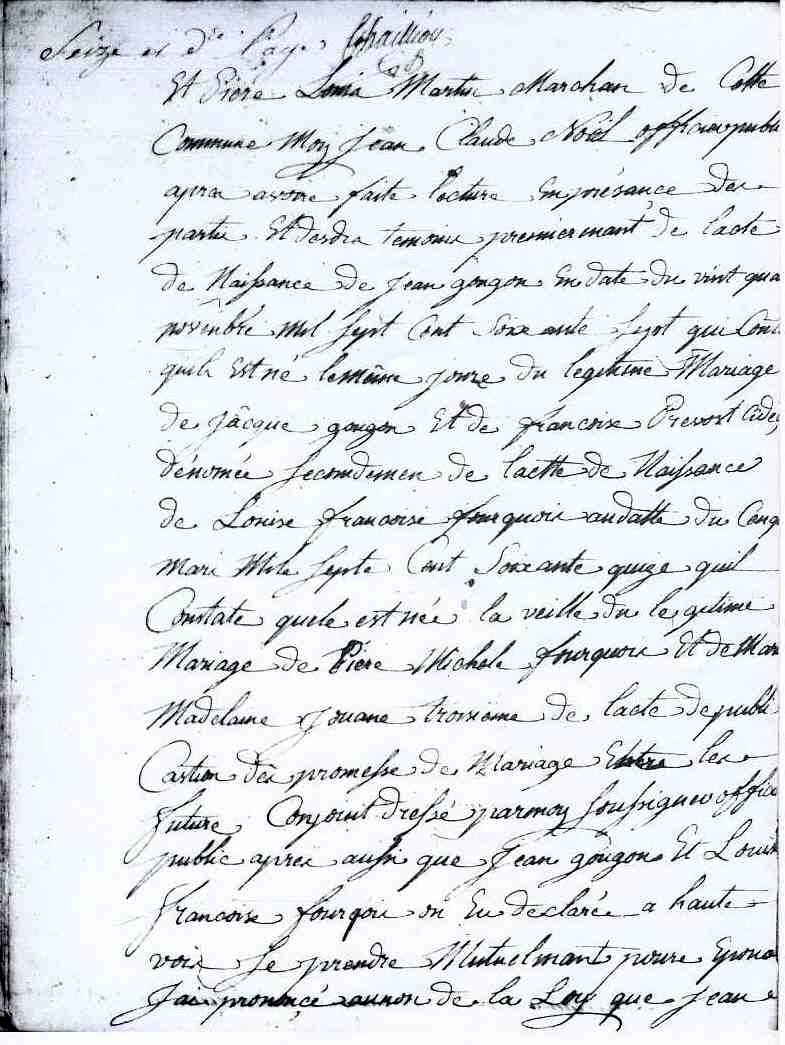 Seize et d.re Page Chaillou
Et Piere Louis Martin Marchan de Cette
Commune Moy Jean Claude Noël officier publi
apres avoire faite lecture Em présance des
partie Et desdis temoins premiermant de lacte
de Naissance de Jean gougon En date du vint qua
novinbre mil Sept Cent Soixante Sept qui Cons
quil Est né le même joure du legitime Mariage
de Jâcque gougon Et de francoise Prevost Cide
dénomée Secondemen de lactte de Naissance
de Louise francoise fourquois an datte du Cinq
Mars Mile Septe Cent Soixante quize quil
Constate quele est née la veille du legitime
Mariage de Piere Michele fourquois Et de Mar
Madelaine Jouane troisieme de lacte de publi
Castion dês promesse de Mariage Entre les
future Conjoint dressé par moy Soussignee offici
public apres aussi que Jean gougon Et Louis
francoise fourqois on Eu desclarée a haute
voix Se prendre Mutuelmant poure Epoux
Jai prononcé aunon de la Loy que Jean